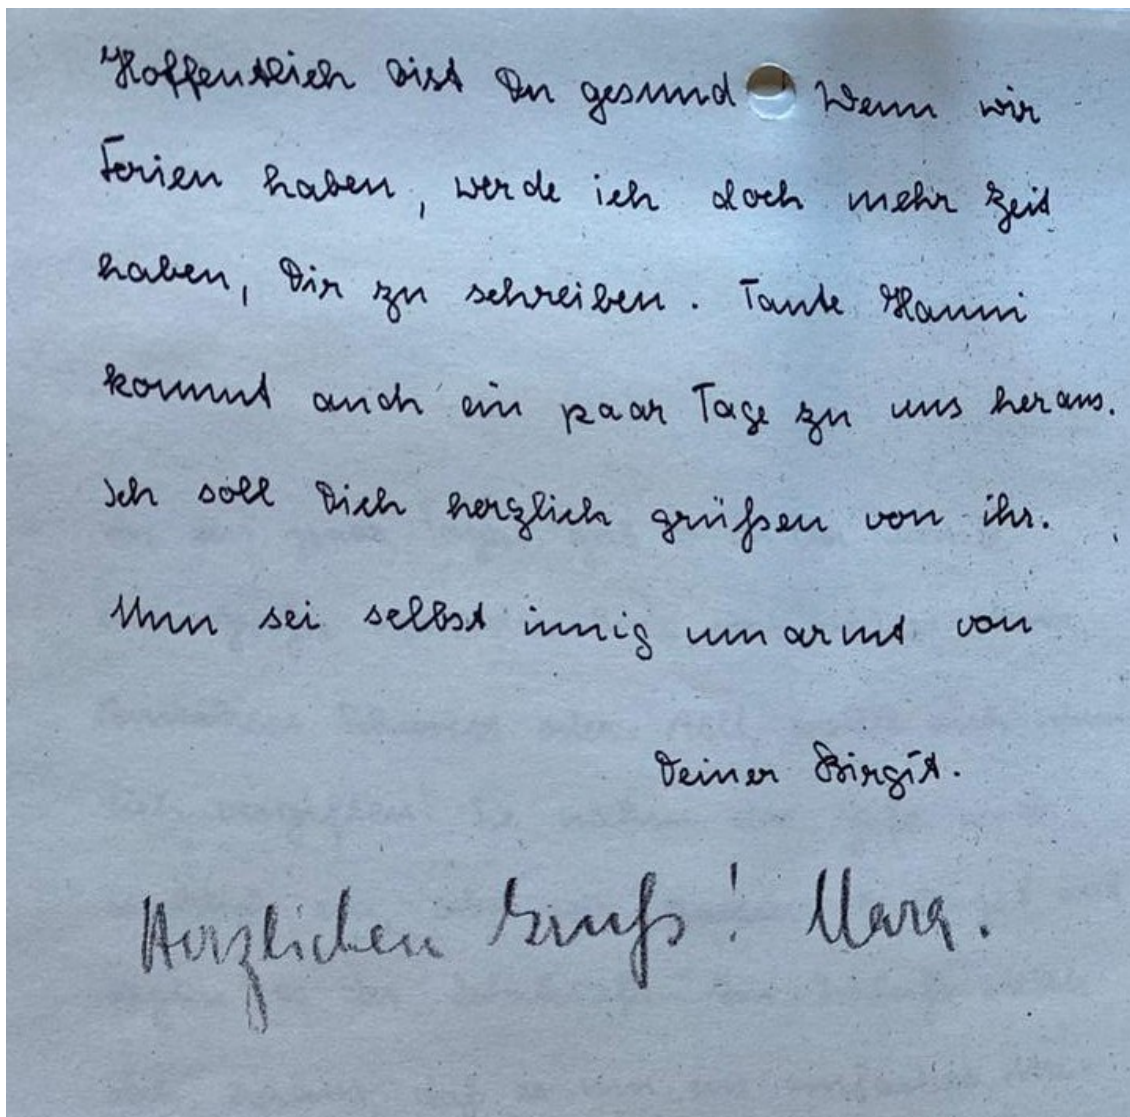 Hoffentlich bist Du gesund! Wenn wir
Ferien haben, werde ich doch mehr Zeit
haben, Dir zu schreiben. Tante Hanni
kommt auch ein paar Tage zu uns heraus.
Ich soll Dich herzlich grüßen von ihr.
Nun sei selbst innig umarmt von
Deiner Birgit.
Herzlichen Gruß! Marg.